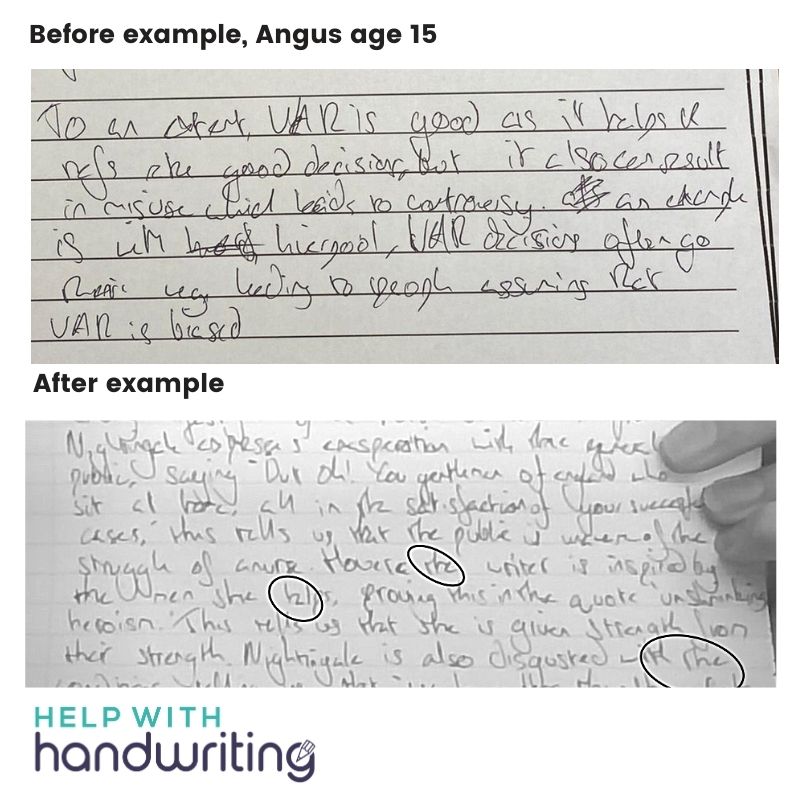 Before example, Angus age 15
To an extent, VAR is good as it helps
refs make good decisions, but it also can result
in misuse which leads to controversy. an example
is with Liverpool, VAR decisions often go
their way leading to people assuming that
VAR is biased
After example
Nightingale expresses exasperation with the general
public, saying "But Oh! You gentlemen of England who
sit at home, all in the satisfaction of your successful
cases," this tells us that the public is unaware of the
struggle of a nurse. However the writer is inspired by
the women she helps, proving this in the quote 'unshrinking
heroism.' This tells us that she is given strength from
their strength. Nightingale is also disgusted with the
HELP WITH
handwriting